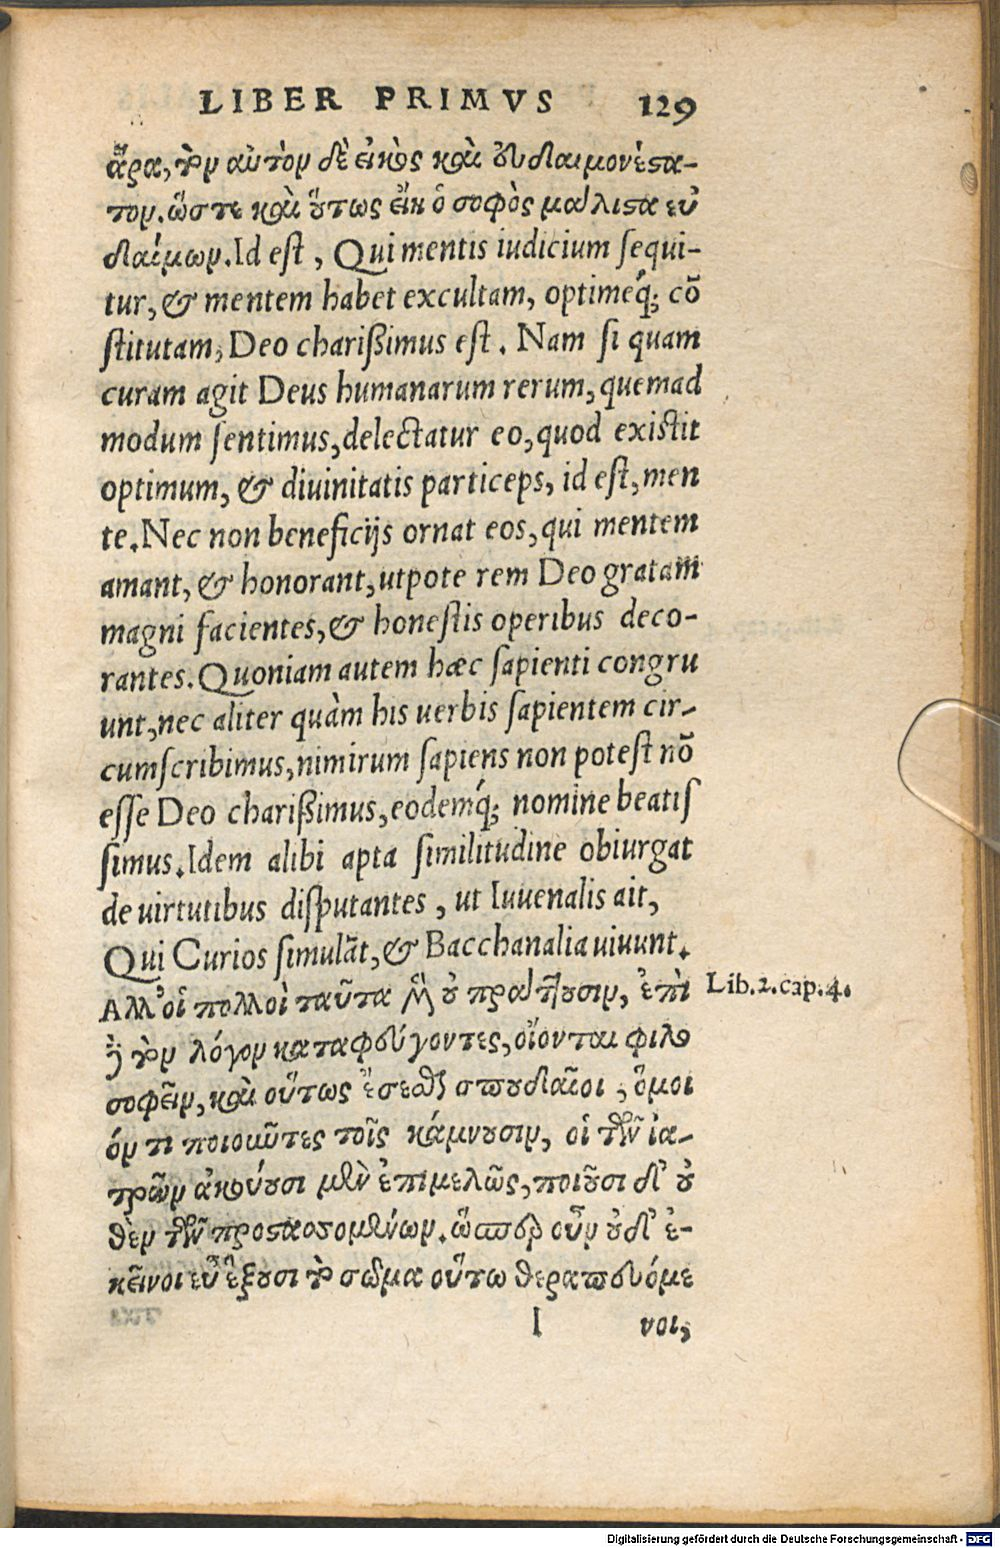 LIBER PRIMVS 129
ἄρα, τὸν αὐτὸν δὲ εἰκὸς καὶ εὐδαιμονέστα-
τον. ὥστε καὶ οὕτως εἴη ὁ σοφὸς μάλιστα εὐ
δαίμων. Id est, Qui mentis iudicium sequi-
tur, & mentem habet excultam, optimeq́; cō
stitutam, Deo charißimus est. Nam si quam
curam agit Deus humanarum rerum, quemad
modum sentimus, delectatur eo, quod existit
optimum, & diuinitatis particeps, id est, men
te. Nec non beneficijs ornat eos, qui mentem
amant, & honorant, utpote rem Deo gratam
magni facientes, & honestis operibus deco-
rantes. Quoniam autem hæc sapienti congru
unt, nec aliter quàm his uerbis sapientem cir-
cumscribimus, nimirum sapiens non potest nō
esse Deo charißimus, eodemq́; nomine beatis
simus. Idem alibi apta similitudine obiurgat
de uirtutibus disputantes, ut Iuuenalis ait,
Qui Curios simulāt, & Bacchanalia uiuunt.
Ἀλλ' οἱ πολλοὶ ταῦτα μὲν οὐ πράττουσιν, ἐπὶ
δὲ τὸν λόγον καταφεύγοντες, οἴονται φιλο
σοφεῖν, καὶ οὕτως ἔσεσθαι σπουδαῖοι, ὅμοι
όν τι ποιοῦντες τοῖς κάμνουσιν, οἱ τῶν ἰα-
τρῶν ἀκούουσι μὲν ἐπιμελῶς, ποιοῦσι δ' οὐ
θὲν τῶν προσταττομένων. ὥσπερ οὖν οὐδ' ἐ-
κεῖνοι εὖ ἕξουσι τὸ σῶμα οὕτω θεραπευόμε
I νοι,
Lib. 2. cap. 4.
Digitalisierung gefördert durch die Deutsche Forschungsgemeinschaft - DFG